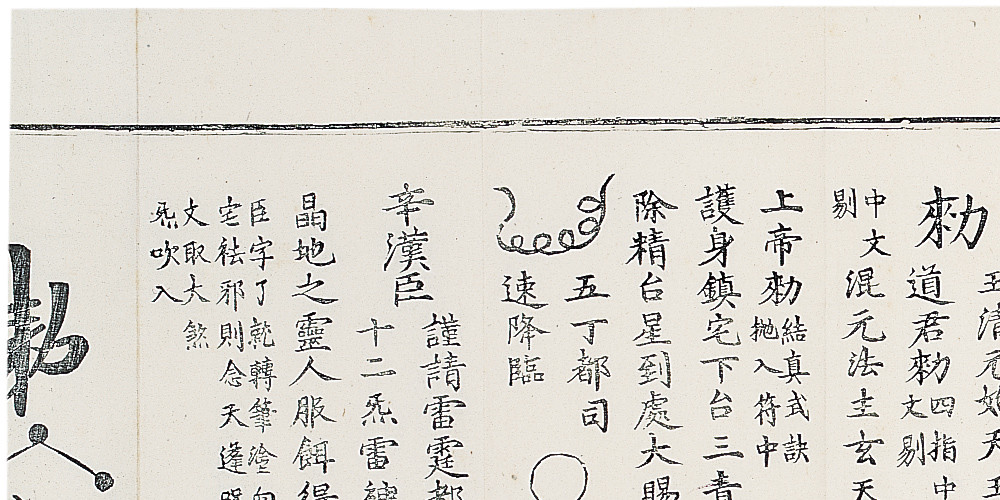 玉清元始天
勑
道君勑
四指中
文剔
中文
剔
混元法主玄天
上帝勑
結真式訣
拋入符中
護身鎮宅下台三
除精台星到處大賜
五丁都司
速降臨
謹請雷霆都
辛漢臣
十二炁雷神
晶地之靈人服餌得
臣字了就轉筆塗
宅祛邪則念天蓬
文取大煞
炁吹入
勑